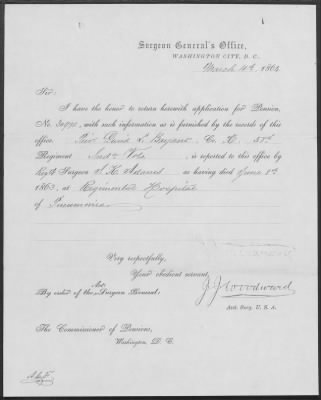 Surgeon General's Office,
WASHINGTON CITY, D. C.
March 4th, 1864
Sir:
I have the honor to return herewith application for Pension,
No. with such information as is furnished by the records of this
office. Priv. David S. Co. K. 15th
Regiment Vols, is reported to this office by
Regtl Surgeon S. K. as having died June 1st
1863, at Regimental Hospital
of Pneumonia
Very respectfully,
Your obedient servant,
By order of the Act. Surgeon General:
J J Woodward
Asst. Surg. U. S. A.
The Commissioner of Pensions,
Washington, D. C.